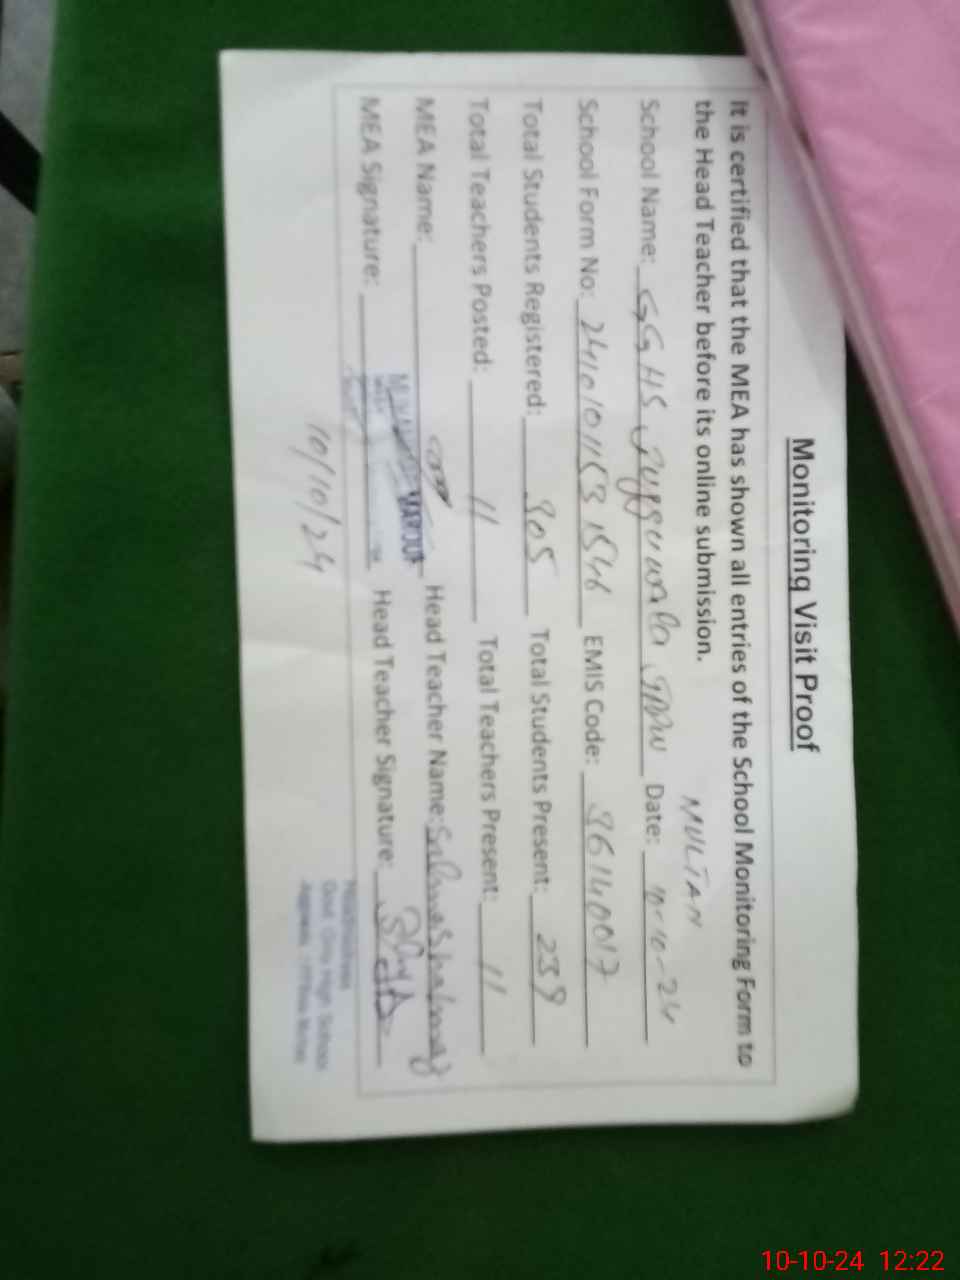 Monitoring Visit Proof
It is certified that the MEA has shown all entries of the School Monitoring Form to
the Head Teacher before its online submission.
MULTAN
School Name: GGHS Date: 10-10-24
School Form No: EMIS Code: 36140017
Total Students Registered: 305 Total Students Present: 239
Total Teachers Posted: 11 Total Teachers Present: 11
MEA Name: Head Teacher Name: Salma
MEA Signature: Head Teacher Signature:
10/10/24
Headmistress
Govt. Girls High School
10-10-24 12:22